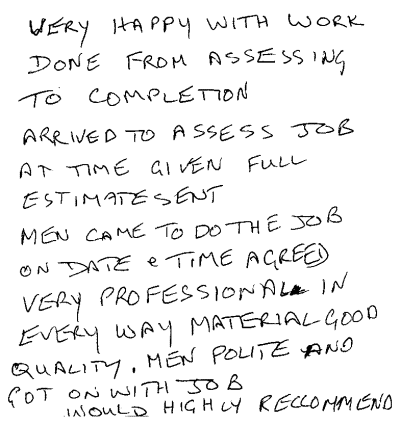 VERY HAPPY WITH WORK
DONE FROM ASSESSING
TO COMPLETION
ARRIVED TO ASSESS JOB
AT TIME GIVEN FULL
ESTIMATE SENT
MEN CAME TO DO THE JOB
ON DATE & TIME AGREED
VERY PROFESSIONAL IN
EVERY WAY MATERIAL GOOD
QUALITY. MEN POLITE AND
GOT ON WITH JOB
WOULD HIGHLY RECCOMMEND